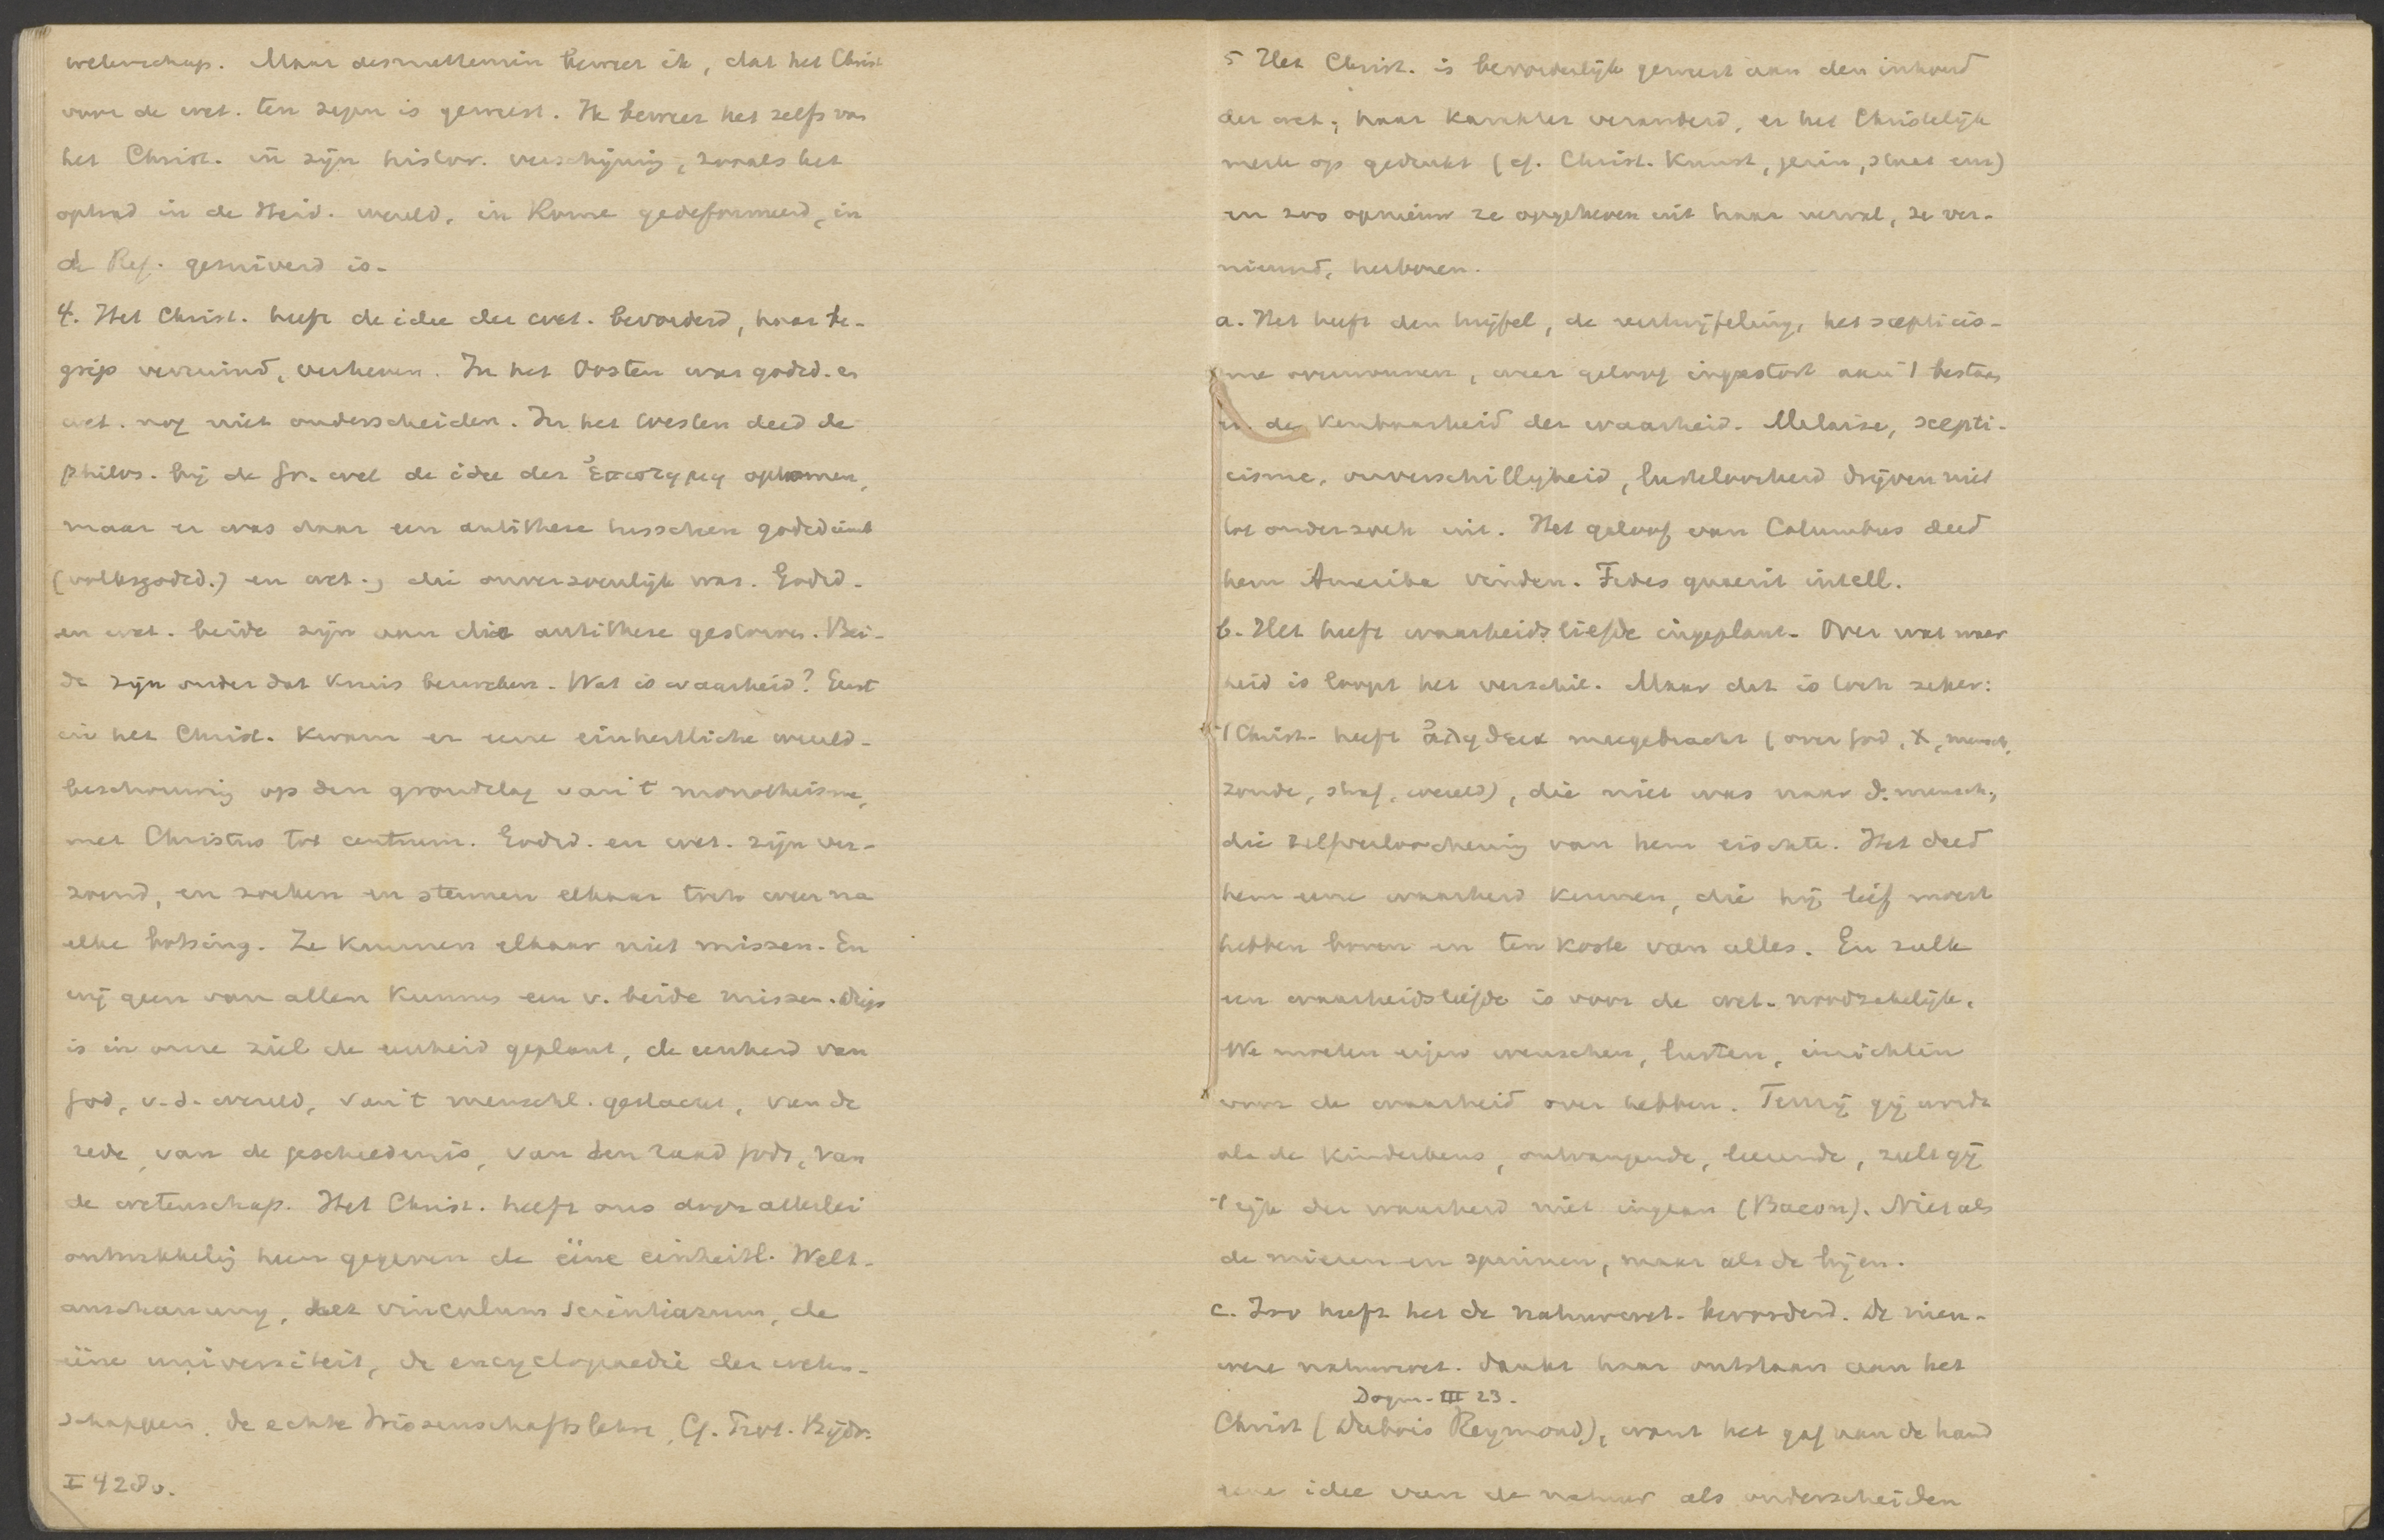 wetenschap. Maar desniettemin beweer ik, dat het Christ
voor de wet. ten zegen is geweest. Ik beweer het zelfs van
het Christ. in zijn histor. verschijning, zooals het
optrad in de Heid. wereld, in Rome gedeformeerd, in
de Ref. gezuiverd is.
4. Het Christ. heeft de idee der wet. bevorderd, haar be-
grip verruimd, verheven. In het Oosten was godsd. en
wet. nog niet onderscheiden. In het Westen deed de
philos. bij de Gr. wel de idee der ἐπιστημη opkomen,
maar er was daar een antithese tusschen godsdienst
(volksgodsd.) en wet., die onverzoenlijk was. Godsd.
en wet. beide zijn aan die antithese gestorven. Bei-
de zijn onder dat kruis bezweken. Wat is waarheid? Eerst
in het Christ. kwam er eene einheitliche wereld-
beschouwing op den grondslag van 't monotheisme,
met Christus tot centrum. Godsd. en wet. zijn ver-
zoend, en zoeken en steunen elkaar toch weer na
elke botsing. Ze kunnen elkaar niet missen. En
wij geen van allen kunnen een v. beide missen. Diep
is in onze ziel de eenheid geplant, de eenheid van
God, v. d. wereld, van 't menschl. geslacht, van de
rede, van de geschiedenis, van den raad Gods, van
de wetenschap. Het Christ. heeft ons door allerlei
ontwikkeling heen gegeven de ééne einheitl. Welt-
anschauung, het vinculum scientiarum, de
ééne universiteit, de encyclopaedie der weten-
schappen, de echte Wissenschaftslehre, Cf. Bijdr.
I 428v.
5 Het Christ. is bevorderlijk geweest aan den inhoud
der wet., haar karakter veranderd, er het Christelijk
merk op gedrukt (cf. Christ. Kunst, gezin, staat enz)
en zoo opnieuw ze opgeheven uit haar verval, ze ver-
nieuwd, herboren.
a. Het heeft den twijfel, de vertwijfeling, het scepticis-
me overwonnen, weer geloof ingestort aan 't bestaan
en de kenbaarheid der waarheid. Malaise, scepti-
cisme, onverschilligheid, lusteloosheid drijven niet
tot onderzoek uit. Het geloof van Columbus deed
hem Amerika vinden. Fides quaerit intell.
b. Het heeft waarheidsliefde ingeplant. Over wat waar
heid is loopt het verschil. Maar dat is toch zeker:
't Christ. heeft ἀληθεια meegebracht (over God, X, mensch,
zonde, straf, wereld), die niet was naar d. mensch,
die zelfverloochening van hem eischte. Het deed
hem eene waarheid kennen, die hij lief moest
hebben boven en ten koste van alles. En zulk
een waarheidsliefde is voor de wet. noodzakelijk.
We moeten eigen wenschen, lusten, inzichten
voor de waarheid over hebben. Tenzij gij wordt
als de kinderkens, ontvangende, leerende, zult gij
't rijk der waarheid niet ingaan (Bacon). Niet als
de mieren en spinnen, maar als de bijen.
c. Zoo heeft het de natuurwet. bevorderd. De nieu-
were natuurwet. dankt haar ontstaan aan het
Dogm. III 23.
Christ (Dubois Reymond), want het gaf aan de hand
eene idee van de natuur als onderscheiden